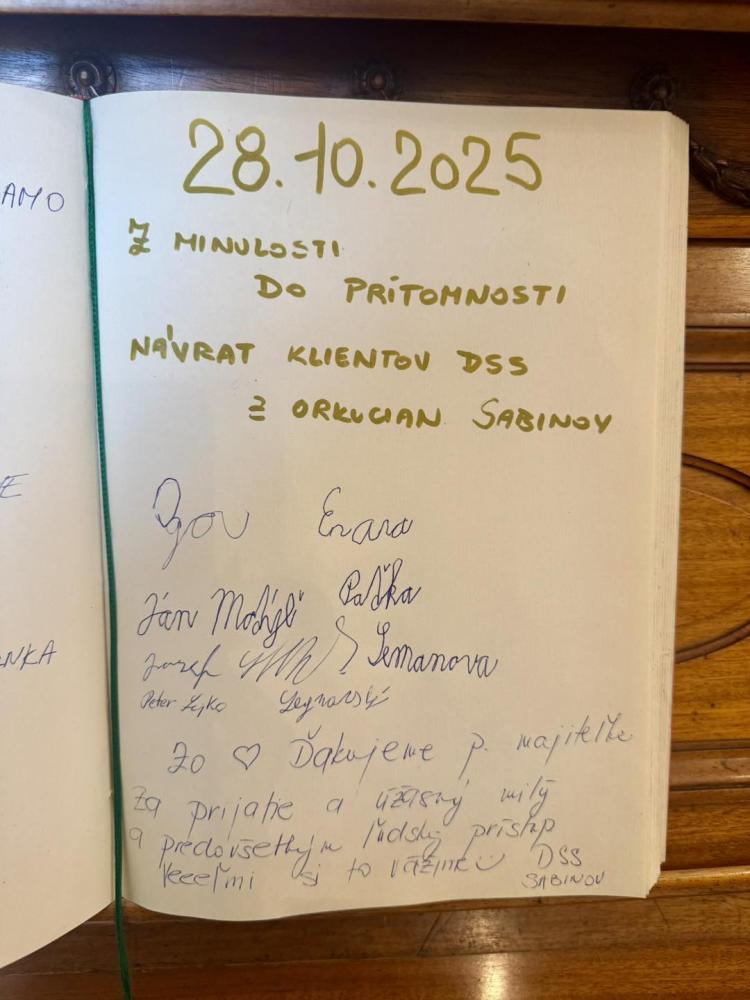 AMO
E
NKA
28.10.2025
Z MINULOSTI
DO PRÍTOMNOSTI
NÁVRAT KLIENTOV DSS
Z ORKUCIAN SABINOV
Igov
Ján
Paška
Jozef Semanova
Peter Lejko
Zo ♡ Ďakujeme p. majiteľke
za prijatie a úžasný milý
a predovšetkým ľudský prístup
Veeeľmi si to vážime DSS
SABINOV